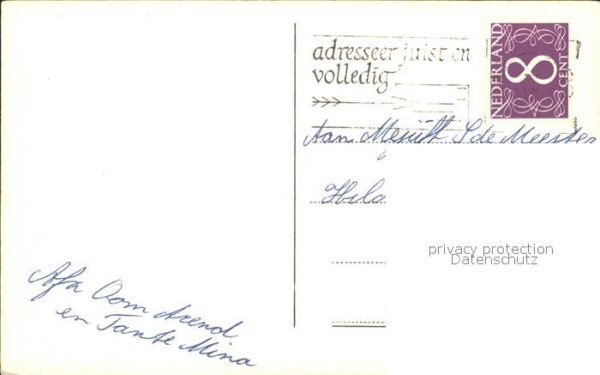 adresseer juist en
volledig
NEDERLAND
8
CENT
Aan S de Meester
Hilo
privacy protection
Datenschutz
Afz Oom Arend
en Tante Mina